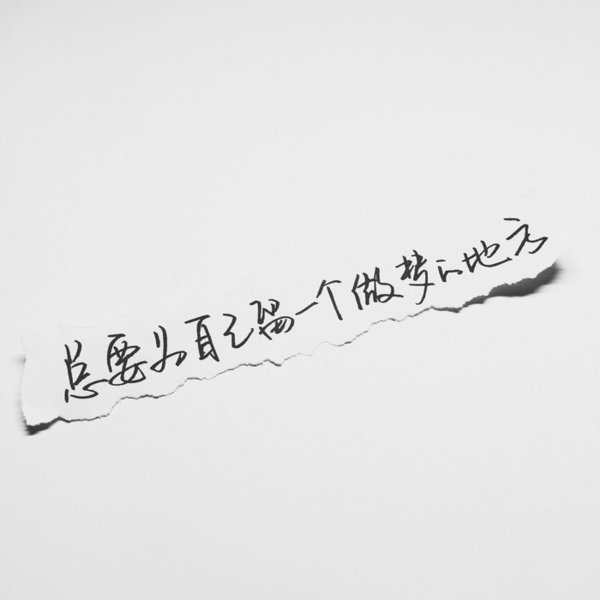 总要为自己留一个做梦的地方